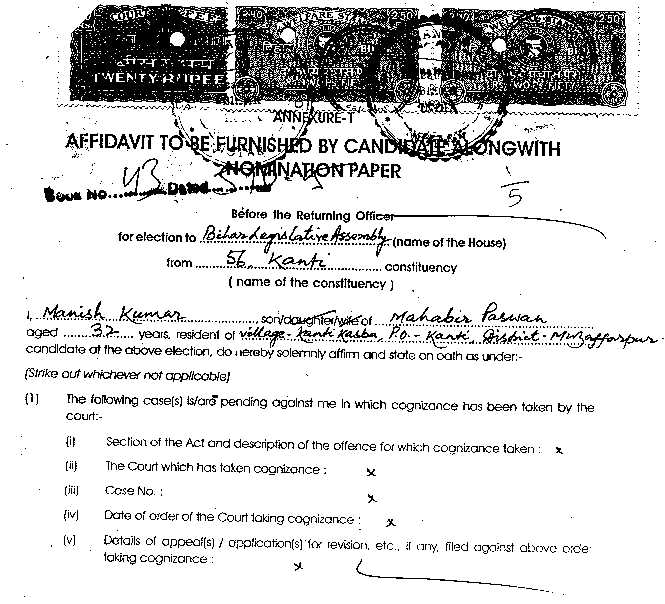 COURT FEE
WELFARE ST
250
250
बीस रुपये
TWENTY RUPEE
ANNEXURE-1
AFFIDAVIT TO BE FURNISHED BY CANDIDATE ALONGWITH
NOMINATION PAPER
BOOK NO. 43 Dated
5
Before the Returning Officer
for election to Bihar Legislative Assembly (name of the House)
from 56, Kanti constituency
( name of the constituency )
I, Manish Kumar son/daughter/wife of Mahabir Paswan
aged 32 years, resident of village- Kanti Kasba, P.o- Kanti, District- Muzaffarpur
candidate at the above election, do hereby solemnly affirm and state on oath as under:-
(Strike out whichever not applicable)
(1) The following case(s) is/are pending against me in which cognizance has been taken by the
court:-
(i) Section of the Act and description of the offence for which cognizance taken : x
(ii) The Court which has taken cognizance : x
(iii) Case No. : x
(iv) Date of order of the Court taking cognizance : x
(v) Details of appeal(s) / application(s) for revision, etc., if any, filed against above order
taking cognizance : x